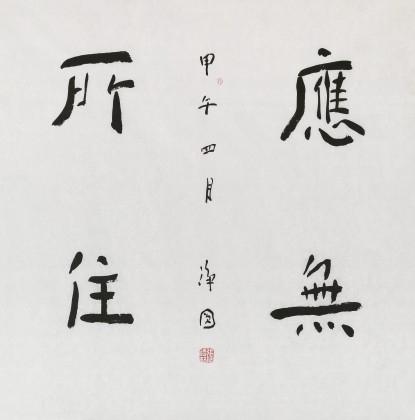 應無
甲午四月 淨
所住